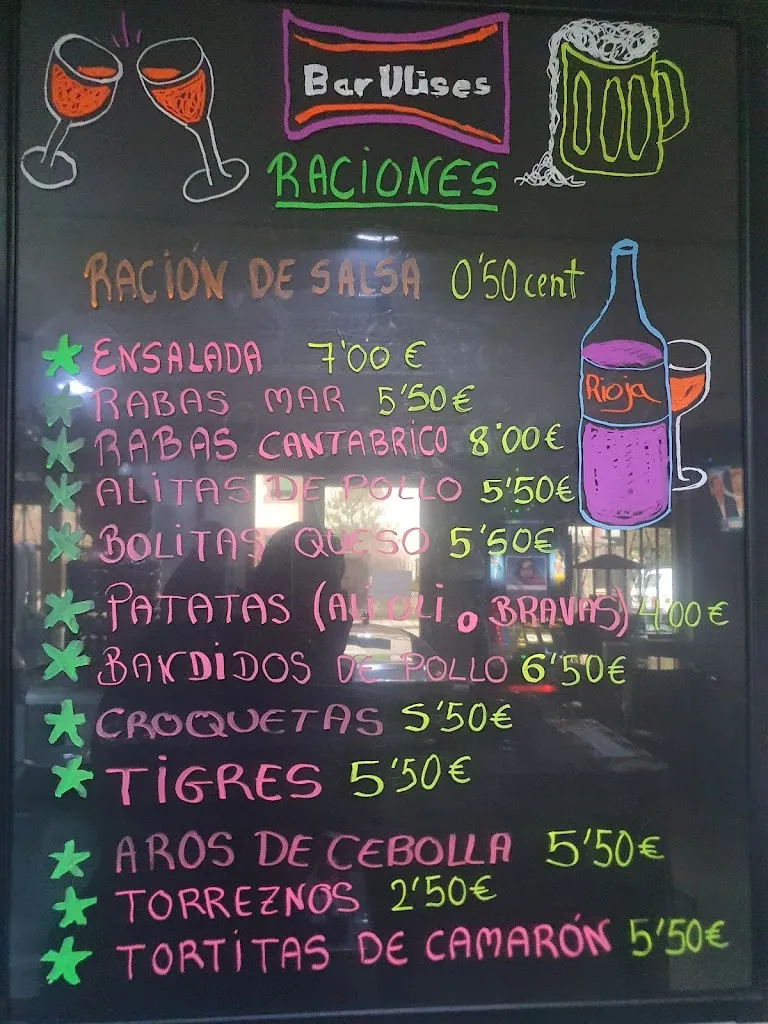 Bar Ulises
RACIONES
RACIÓN DE SALSA 0'50 cent
ENSALADA 7'00 €
RABAS MAR 5'50 €
RABAS CANTABRICO 8'00 €
ALITAS DE POLLO 5'50 €
BOLITAS QUESO 5'50 €
PATATAS (ALI OLI o BRAVAS) 4'00 €
BANDIDOS DE POLLO 6'50 €
CROQUETAS 5'50 €
TIGRES 5'50 €
AROS DE CEBOLLA 5'50 €
TORREZNOS 2'50 €
TORTITAS DE CAMARÓN 5'50 €
Rioja